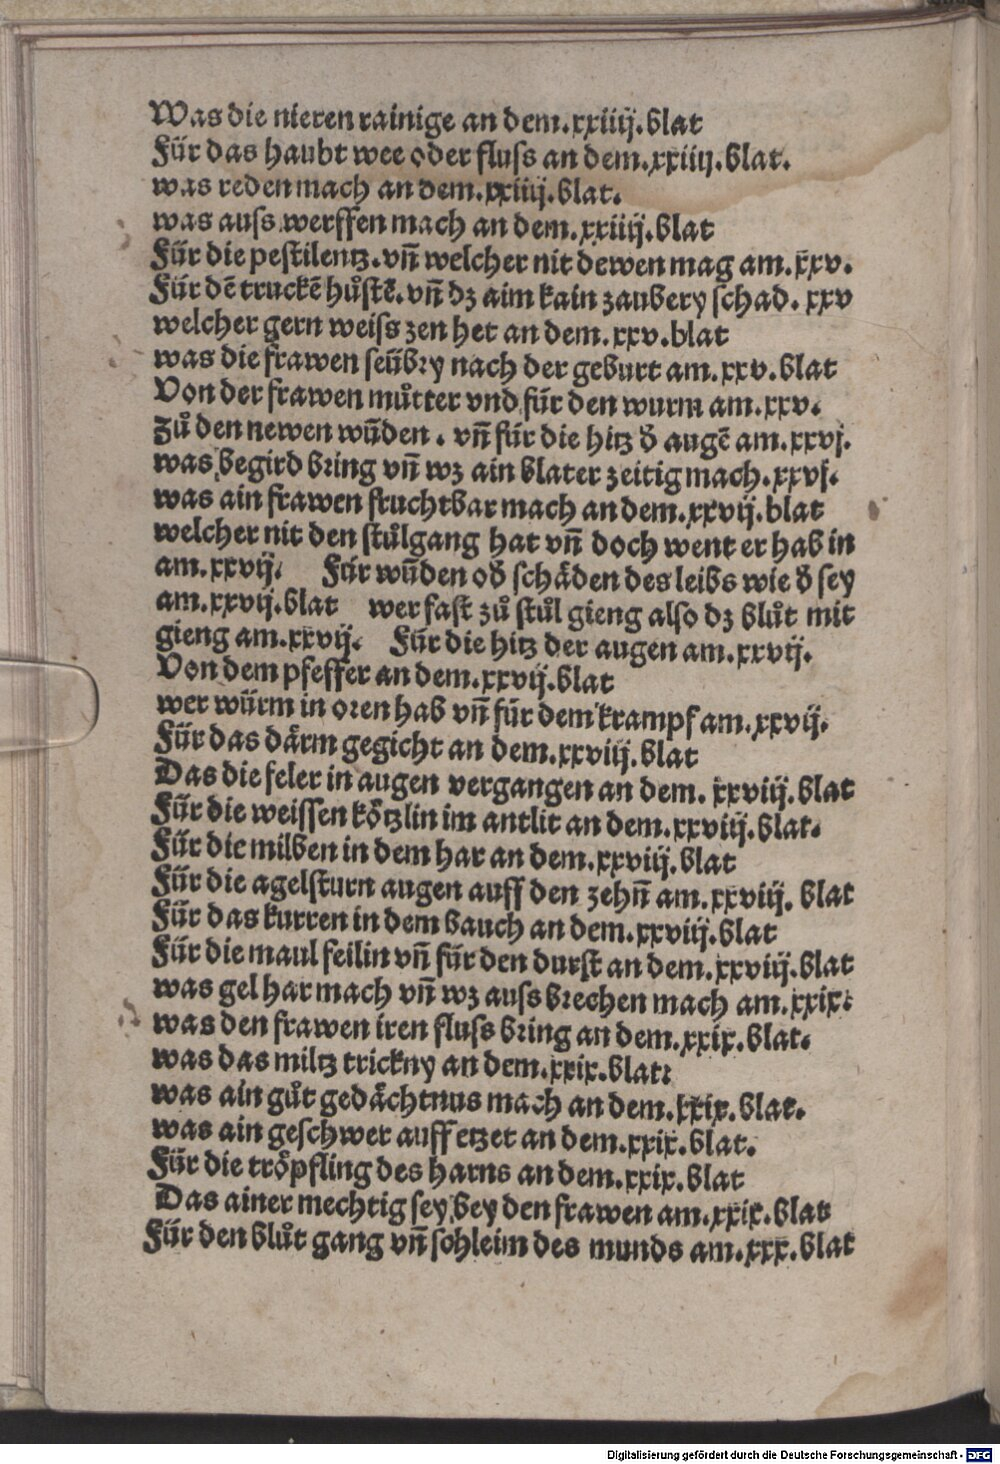 Was die nieren rainige an dem.xxiiij.blat
Für das haubt wee oder fluſs an dem.xxiiij.blat.
was reden mach an dem.xxiiij.blat.
was auſs werffen mach an dem.xxiiij.blat
Für die peſtilentz.vn̄ welcher nit dewen mag am.xxv.
Für dē truckē hůſtē.vn̄ dz aim kain zaubery ſchad.xxv
welcher gern weiſs zen het an dem.xxv.blat
was die frawen ſeübꝛy nach der geburt am.xxv.blat
Von der frawen můtter vnd für den wurm am.xxv.
Zů den newen wūden. vn̄ für die hitz ď augē am.xxvj.
was begird bꝛing vn̄ wz ain blater zeitig mach.xxvj.
was ain frawen fruchtbar mach an dem.xxvij.blat
welcher nit den ſtůlgang hat vn̄ doch went er hab in
am.xxvij. Für wūden oď ſchäden des leibs wie ď ſey
am.xxvij.blat wer faſt zů ſtůl gieng alſo dz blůt mit
gieng am.xxvij. Für die hitz der augen am.xxvij.
Von dem pfeffer an dem.xxvij.blat
wer würm in oꝛen hab vn̄ für dem krampf am.xxvij.
Für das därm gegicht an dem.xxviij.blat
Das die feler in augen vergangen an dem.xxviij.blat
Für die weiſſen kötzlin im antlit an dem.xxviij.blat.
Für die milben in dem har an dem.xxviij.blat
Für die agelſturn augen auff den zehn̄ am.xxviij.blat
Für das kurren in dem bauch an dem.xxviij.blat
Für die maul feilin vn̄ für den durſt an dem.xxviij.blat
was gel har mach vn̄ wz auſs bꝛechen mach am.xxix.
was den frawen iren fluſs bꝛing an dem.xxix.blat.
was das miltz trickny an dem.xxix.blat.
was ain gůt gedächtnus mach an dem.xxix.blat.
was ain geſchwer auff etzet an dem.xxix.blat.
Für die tröpfling des harns an dem.xxix.blat
Das ainer mechtig ſey bey den frawen am.xxix.blat
Für den blůt gang vn̄ ſchleim des munds am.xxx.blat
Digitalisierung gefördert durch die Deutsche Forschungsgemeinschaft - DFG